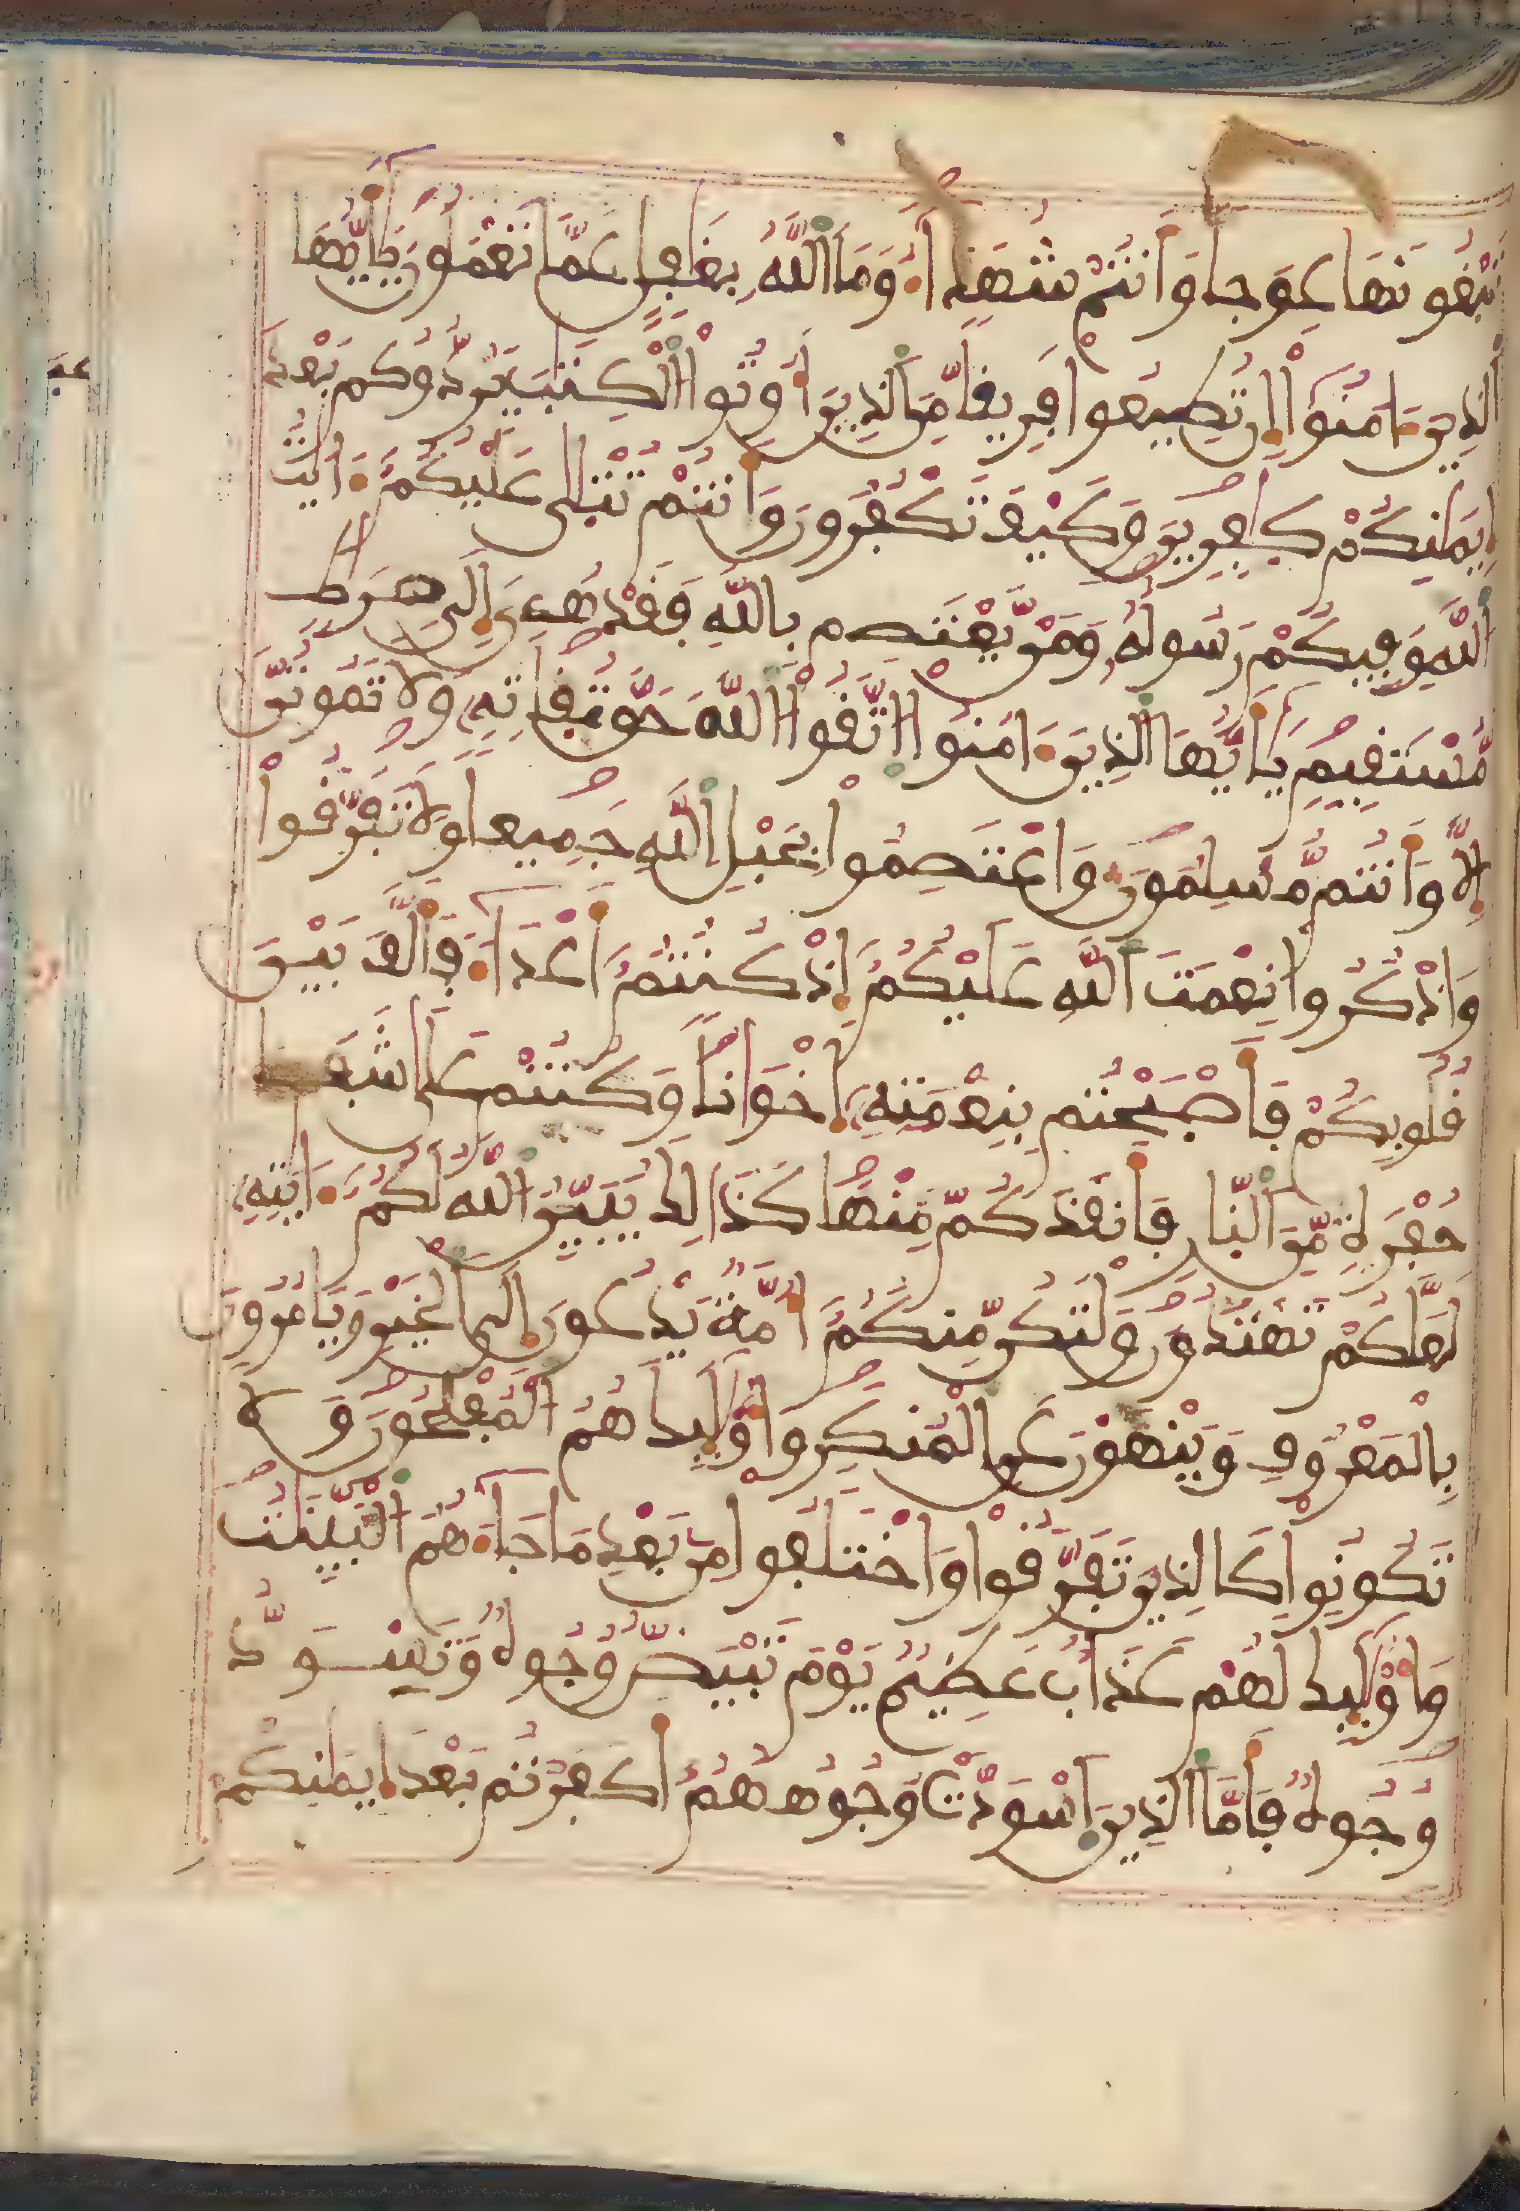 تَبْغُونَهَا عِوَجا وَأَنتُمْ شُهَدَآءُ وَمَا اَ۬للَّهُ بِغَٰفِلٍ عَمَّا تَعْمَلُونَ يَٰٓأَيُّهَا
اَ۬لذِينَ ءَامَنُوٓاْ إِن تُطِيعُواْ فَرِيقا مِّنَ اَ۬لذِينَ أُوتُواْ اُ۬لْكِتَٰبَ يَرُدُّوكُم بَعْدَ
إِيمَٰنِكُمْ كَٰفِرِينَ وَكَيْفَ تَكْفُرُونَ وَأَنتُمْ تُتْلَىٰ عَلَيْكُمُۥٓ ءَايَٰتُ
اُ۬للَّهِ وَفِيكُمْ رَسُولُهُۥ وَمَنْ يَّعْتَصِم بِاللَّهِ فَقَدْ هُدِيَ إِلَىٰ صِرَٰطٖ
مُّسْتَقِيمٖ يَٰٓأَيُّهَا اَ۬لذِينَ ءَامَنُواْ اُ۪تَّقُواْ اُ۬للَّهَ حَقَّ تُقَاتِهِۦ وَلَا تَمُوتُنَّ
إِلَّا وَأَنتُم مُّسْلِمُونَ وَاعْتَصِمُواْ بِحَبْلِ اِ۬للَّهِ جَمِيعا وَلَا تَفَرَّقُواْ
وَاذْكُرُواْ نِعْمَتَ اَ۬للَّهِ عَلَيْكُمُۥٓ إِذْ كُنتُمُۥٓ أَعْدَآءٗ فَأَلَّفَ بَيْنَ
قُلُوبِكُمْ فَأَصْبَحْتُم بِنِعْمَتِهِۦٓ إِخْوَٰنا وَكُنتُمْ عَلَىٰ شَفَا
حُفْرَةٖ مِّنَ اَ۬لنّ۪ارِ فَأَنقَذَكُم مِّنْهَا كَذَٰلِكَ يُبَيِّنُ اُ۬للَّهُ لَكُمُۥٓ ءَايَٰتِهِۦ
لَعَلَّكُمْ تَهْتَدُونَ وَلْتَكُن مِّنكُمُۥٓ أُمَّةٞ يَدْعُونَ إِلَى اَ۬لْخَيْرِ وَيَامُرُونَ
بِالْمَعْرُوفِ وَيَنْهَوْنَ عَنِ اِ۬لْمُنكَرِ وَأُوْلَٰٓئِكَ هُمُ اُ۬لْمُفْلِحُونَ وَلَا
تَكُونُواْ كَالذِينَ تَفَرَّقُواْ وَاخْتَلَفُواْ مِنۢ بَعْدِ مَا جَآءَهُمُ اُ۬لْبَيِّنَٰتُ
وَأُوْلَٰٓئِكَ لَهُمْ عَذَابٌ عَظِيمٞ يَوْمَ تَبْيَضُّ وُجُوهٞ وَتَسْوَدُّ
وُجُوهٞ فَأَمَّا اَ۬لذِينَ اَ۪سْوَدَّتْ وُجُوهُهُمُۥٓ أَكَفَرْتُم بَعْدَ إِيمَٰنِكُمْ